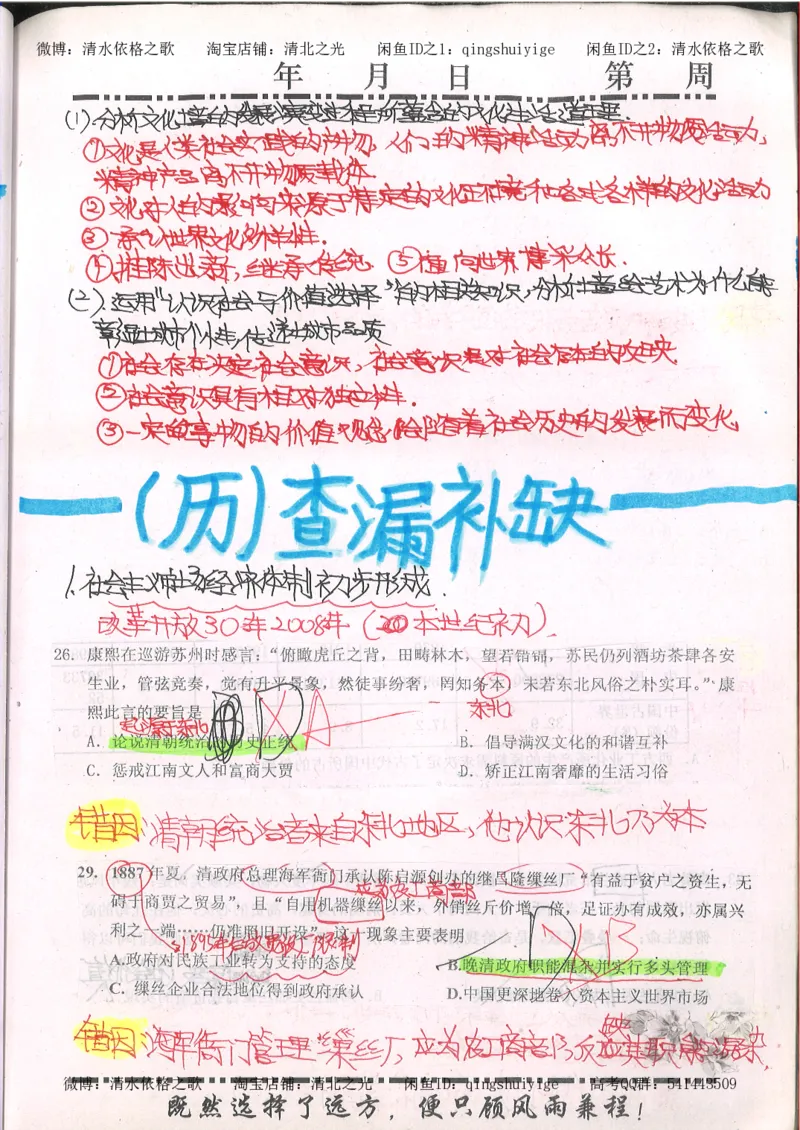 微博：清水依格之歌 淘宝店铺：清北之光 闲鱼ID之1：qingshuiyige 闲鱼ID之2：清水依格之歌
年 月 日 第 周
(1).分析文化 的发展演变过程所蕴含的文化生活道理.
①文化是人类社会实践的产物，人们的精神活动离不开物质活动，
精神产品离不开物质载体.
②文化对人的影响来源于特定的文化环境和各式各样的文化活动
③承认世界文化多样性.
④推陈出新，继承传统. ⑤面向世界博采众长.
(2).运用"认识社会与价值选择"的相关知识，分析 艺术为什么能
彰显城市个性传递城市品质
①社会存在决定社会意识，社会意识是对社会存在的反映
②社会意识具有相对独立性.
③一定事物的价值观念会随着社会历史的发展而变化
(历)查漏补缺
1.社会主义市场经济体制初步形成.
改革开放30年2008年(20 本世纪初).
26. 康熙在巡游苏州时感言："俯瞰虎丘之背，田畴林木，望若错绣，苏民仍列酒坊茶肆各安
生业，管弦竞奏，觉有升平景象，然徒事纷奢，罔知务本，未若东北风俗之朴实耳。"康
东北
熙此言的要旨是 D A
起源于东北
A. 论说清朝统治的历史正统 B. 倡导满汉文化的和谐互补
C. 惩戒江南文人和富商大贾 D. 矫正江南奢靡的生活习俗
错因：清朝统治者来自东北地区，他认识东北乃为本
29. 1887年夏，清政府总理海军衙门承认陈启源创办的继昌隆缫丝厂"有益于贫户之资生，无
应为农工商部
碍于商贾之贸易"，且"自用机器缫丝以来，外销丝斤价增一倍，足证办有成效，亦属兴
利之一端……仍准照旧开设"。这一现象主要表明 D B
1895年后放宽设厂限制
A.政府对民族工业转为支持的态度 B.晚清政府职能混杂并实行多头管理
C. 缫丝企业合法地位得到政府承认 D.中国更深地卷入资本主义世界市场
错因：海军衙门管理缫丝厂，应为农工商部，反应其职能混杂，
微博：清水依格之歌 淘宝店铺：清北之光 闲鱼ID：qingshuiyige 高考QQ群：541443509
既然选择了远方，便只顾风雨兼程！